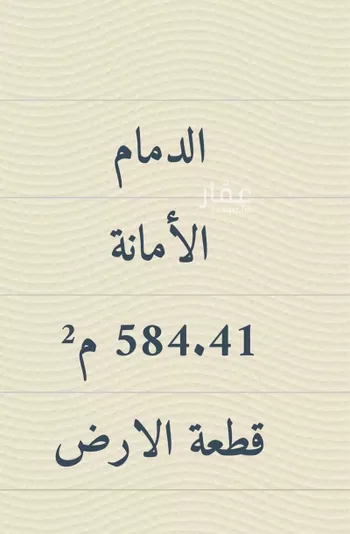 الدمام
عقار
الأمانة
584.41 م²
قطعة الارض